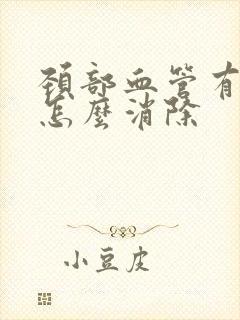 頚部血管有
怎麼消除
小豆皮